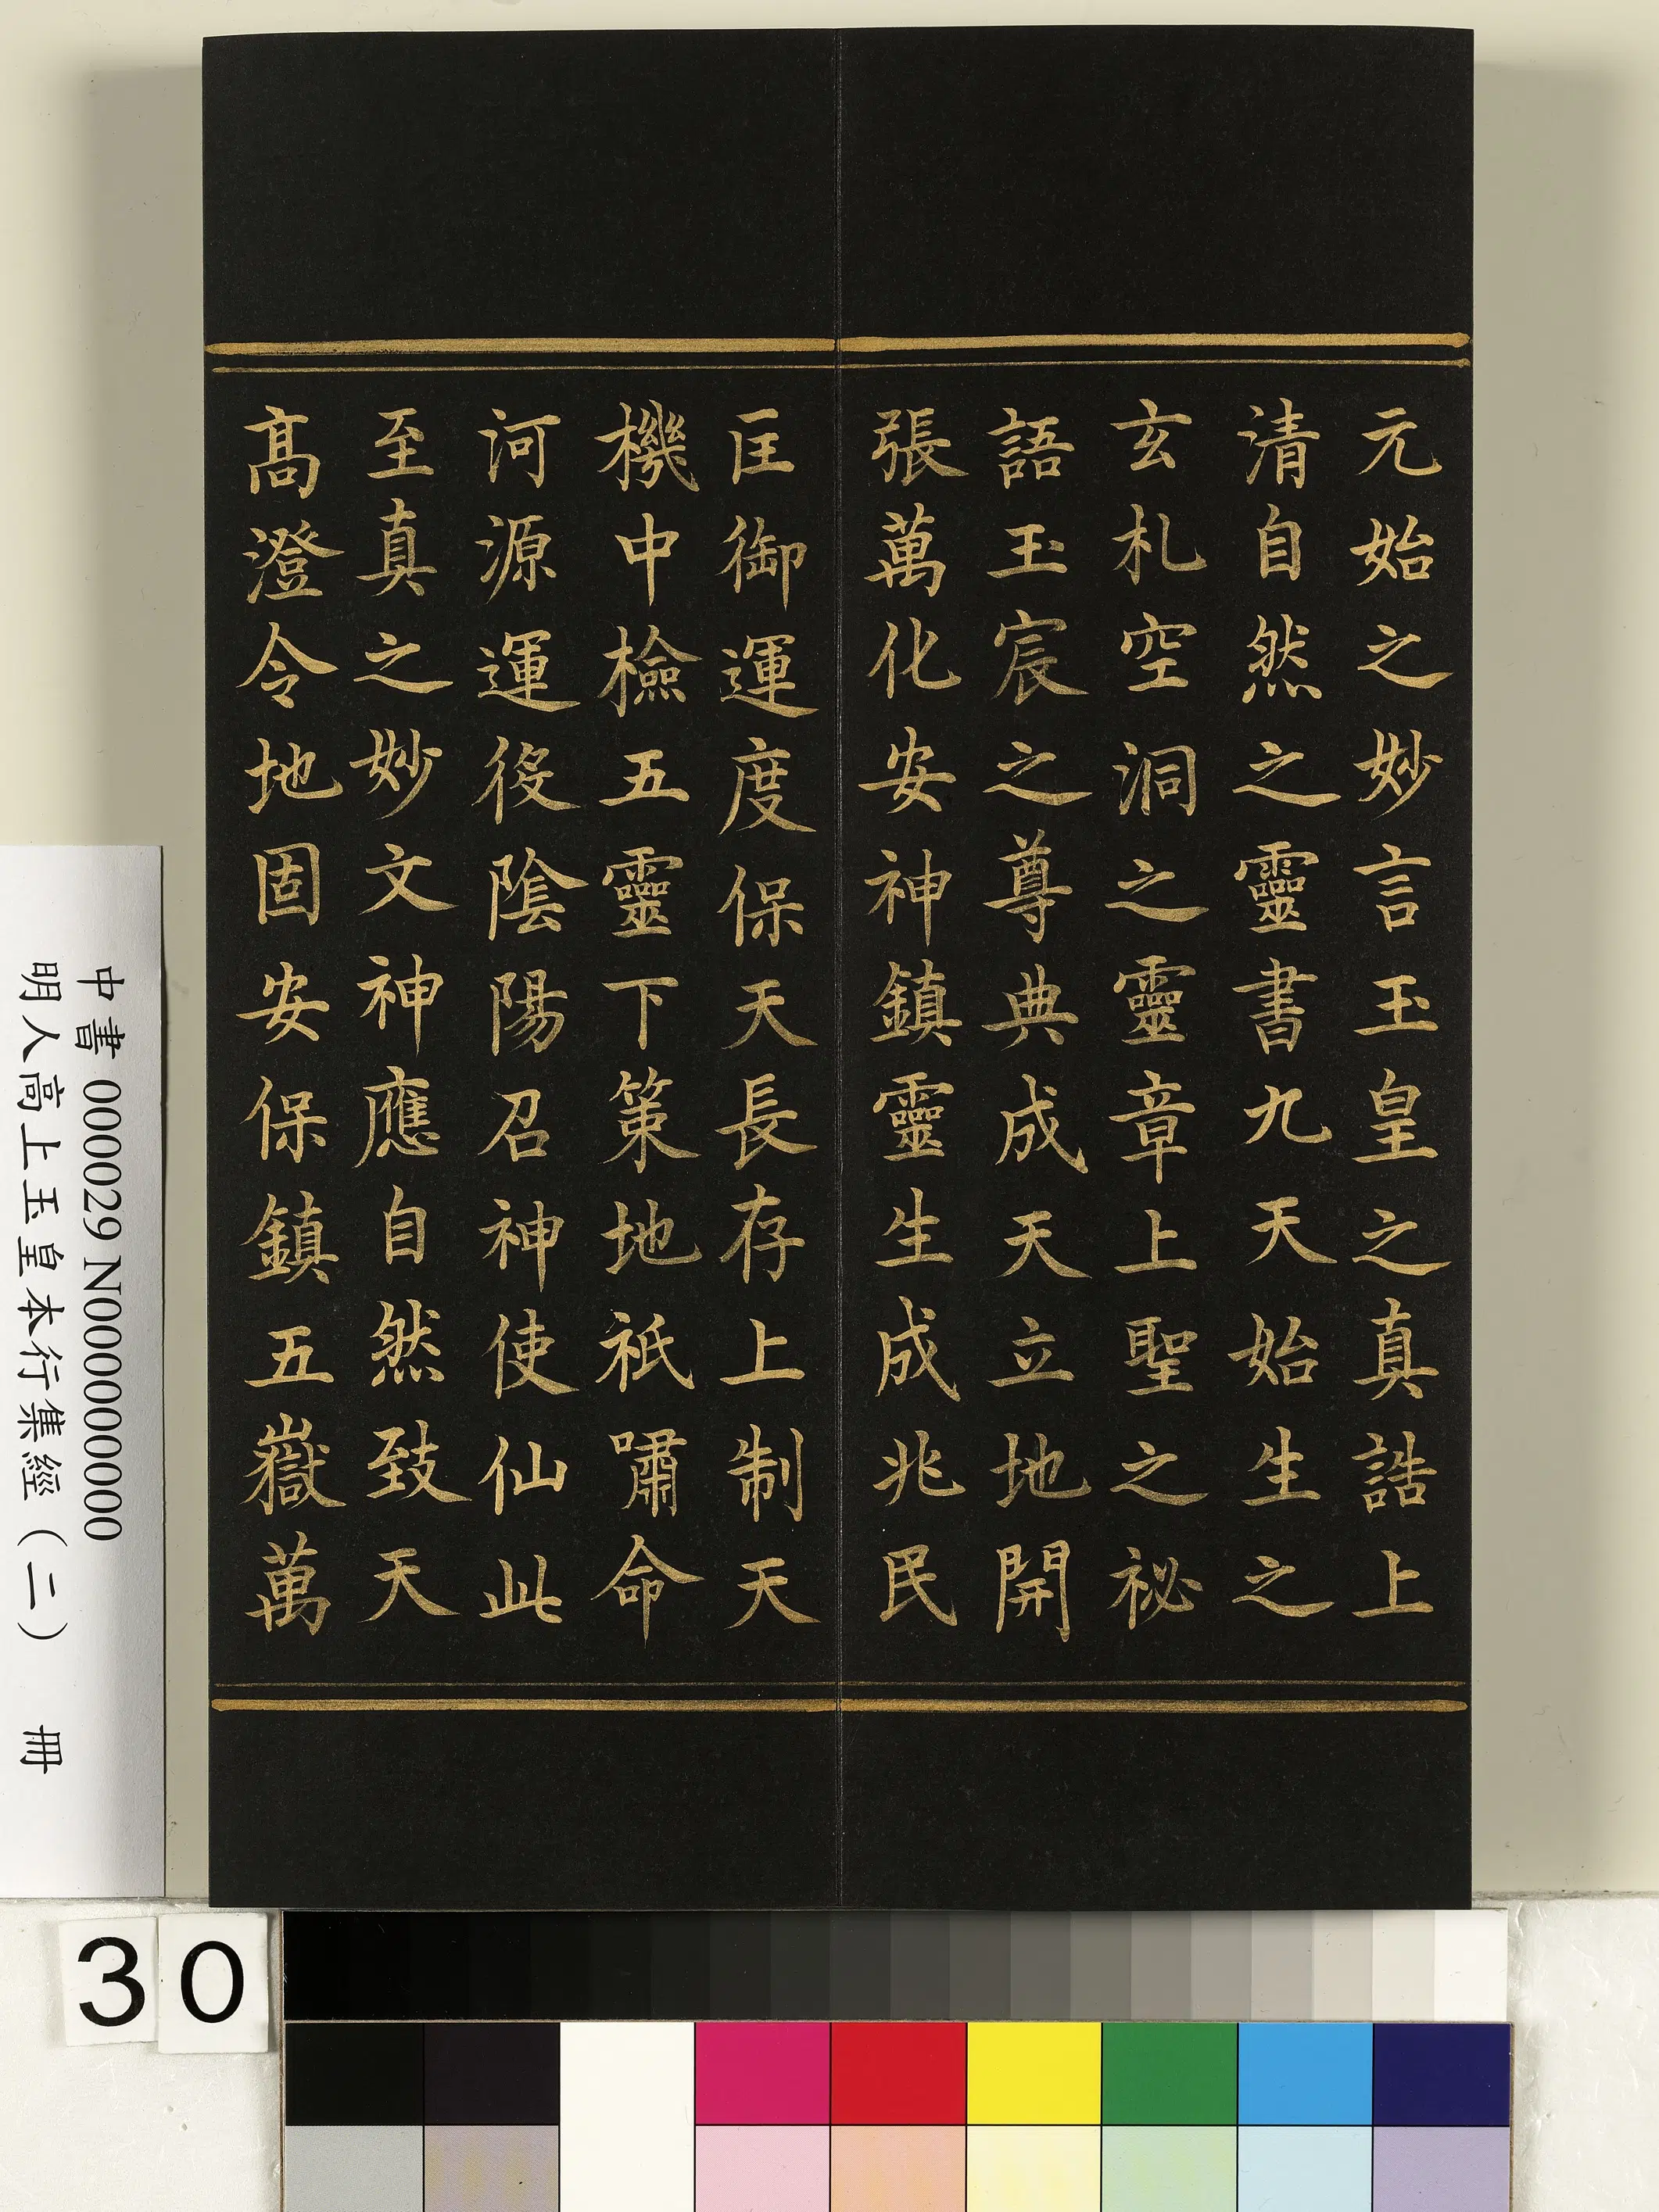 元始之妙言玉皇之真誥上
清自然之靈書九天始生之
玄札空洞之靈章上聖之祕
語玉宸之尊典成天立地開
張萬化安神鎮靈生成兆民
匡御運度保天長存上制天
機中檢五靈下策地祇嘯命
河源運役陰陽召神使仙此
至真之妙文神應自然致天
髙澄令地固安保鎮五嶽萬
中書 000029 N000000000
明人高上玉皇本行集經（二） 冊
30